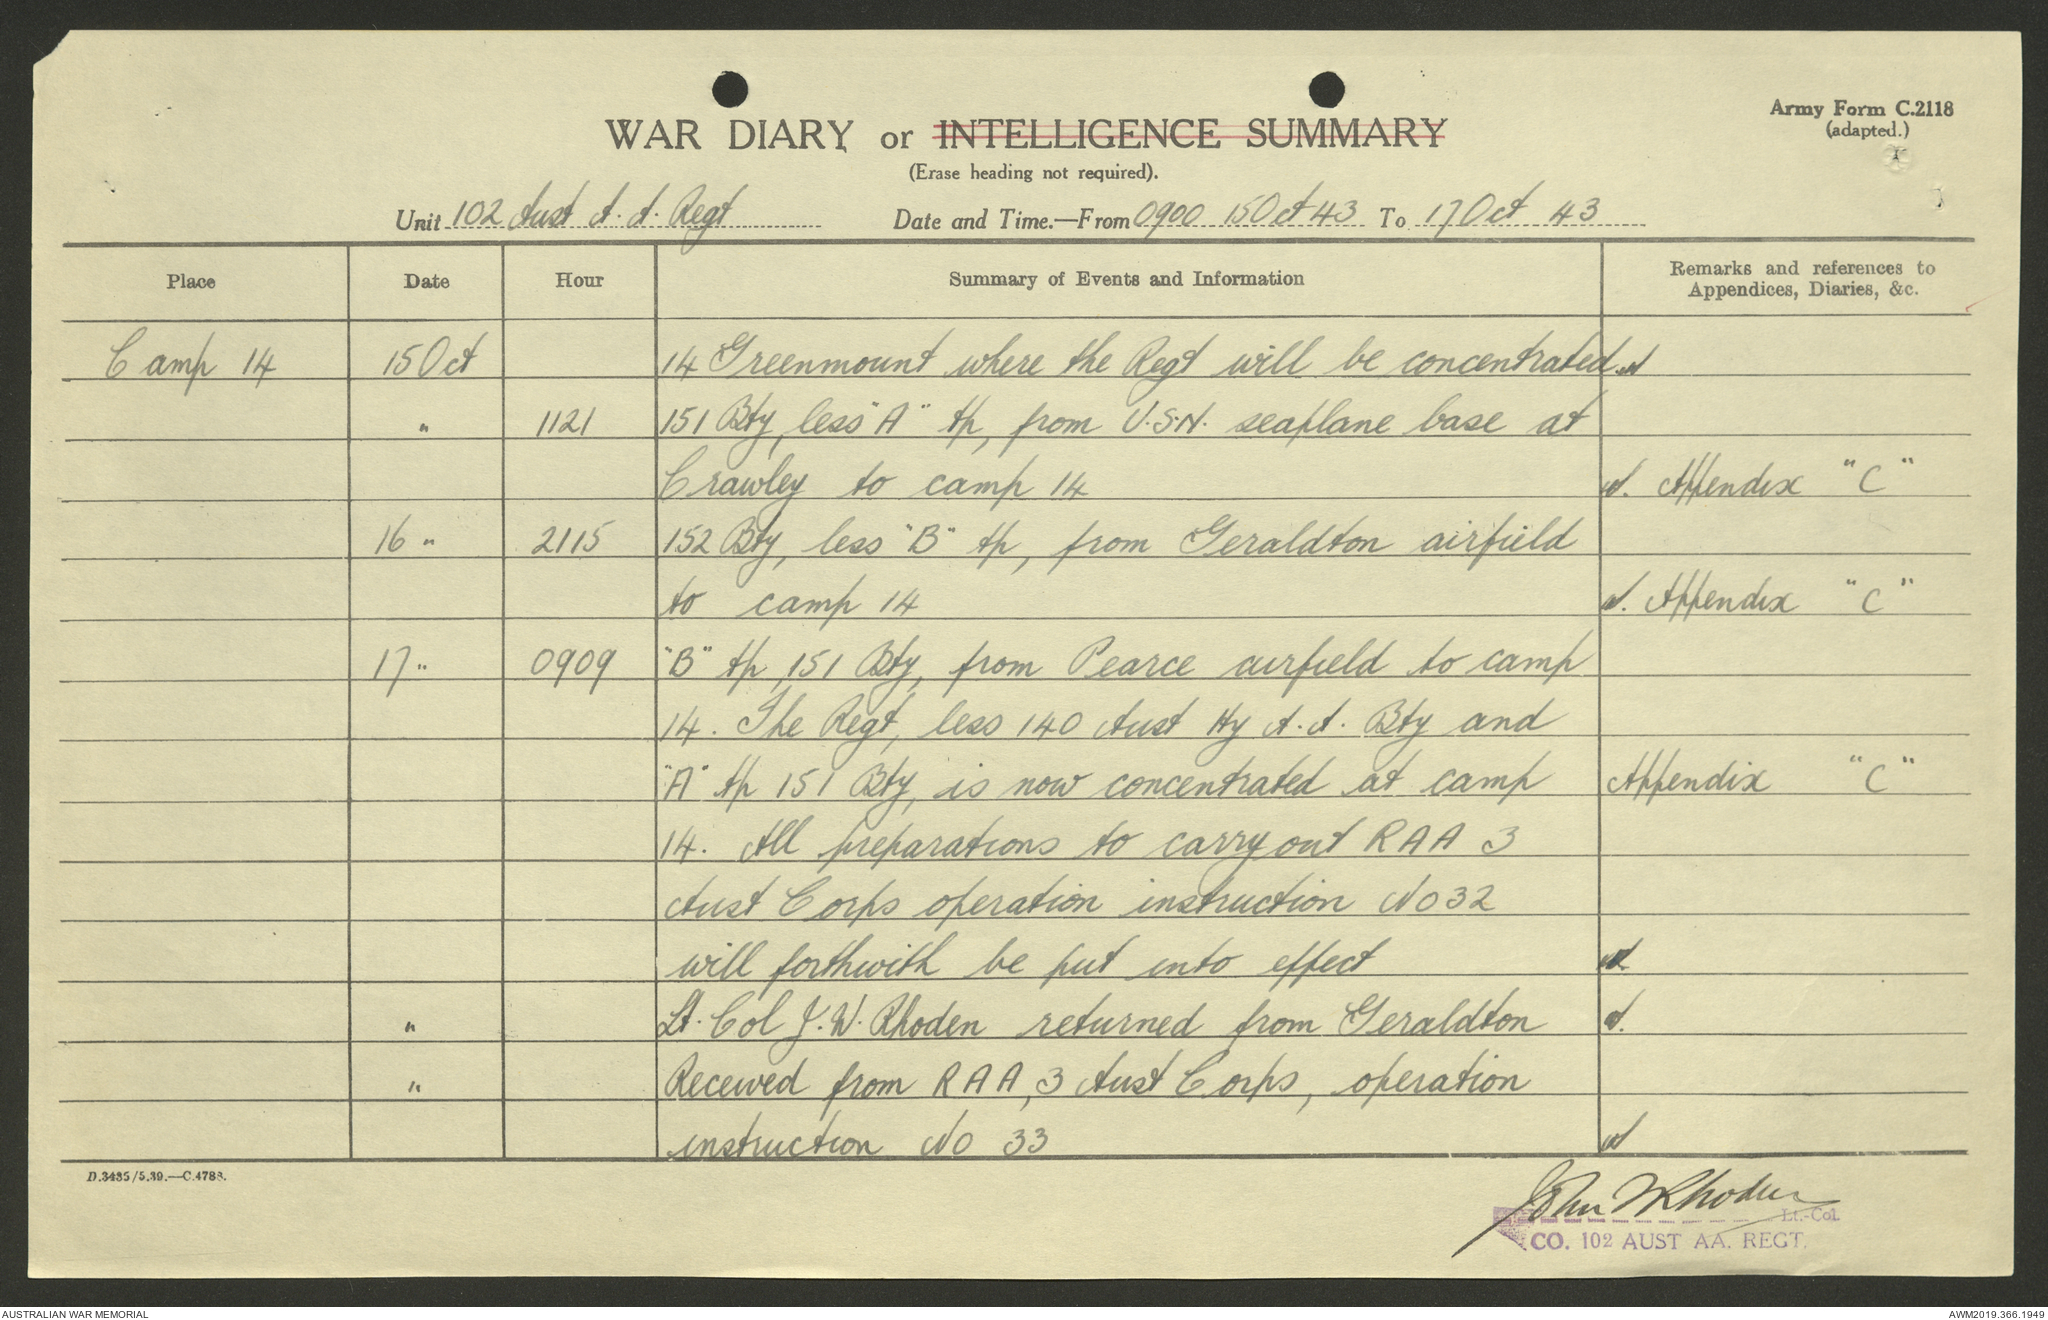 Army Form C.2118
(adapted.)
WAR DIARY or INTELLIGENCE SUMMARY
(Erase heading not required).
Unit 102 Aust A.A. Regt Date and Time.—From 0900 15 Oct 43 To 17 Oct 43
Place Date Hour Summary of Events and Information Remarks and references to
Appendices, Diaries, &c.
Camp 14 15 Oct 14 Greenmount where the Regt will be concentrated.
" 1121 151 Bty, less "A" tp, from U.S.N. seaplane base at
Crawley to camp 14 Appendix "C"
16 " 2115 152 Bty, less "B" tp, from Geraldton airfield
to camp 14 Appendix "C"
17 " 0909 "B" tp, 151 Bty, from Pearce airfield to camp
14. The Regt, less 140 Aust Hy A.A. Bty and
"A" tp 151 Bty, is now concentrated at camp Appendix "C"
14. All preparations to carry out RAA 3
Aust Corps operation instruction No 32
will forthwith be put into effect
" Lt. Col J.W. Rhoden returned from Geraldton
" Received from RAA, 3 Aust Corps, operation
instruction No 33
D.3435/5.39.—C.4788.
John W Rhoden
Lt.-Col.
CO. 102 AUST AA. REGT.
AUSTRALIAN WAR MEMORIAL AWM2019.366.1949